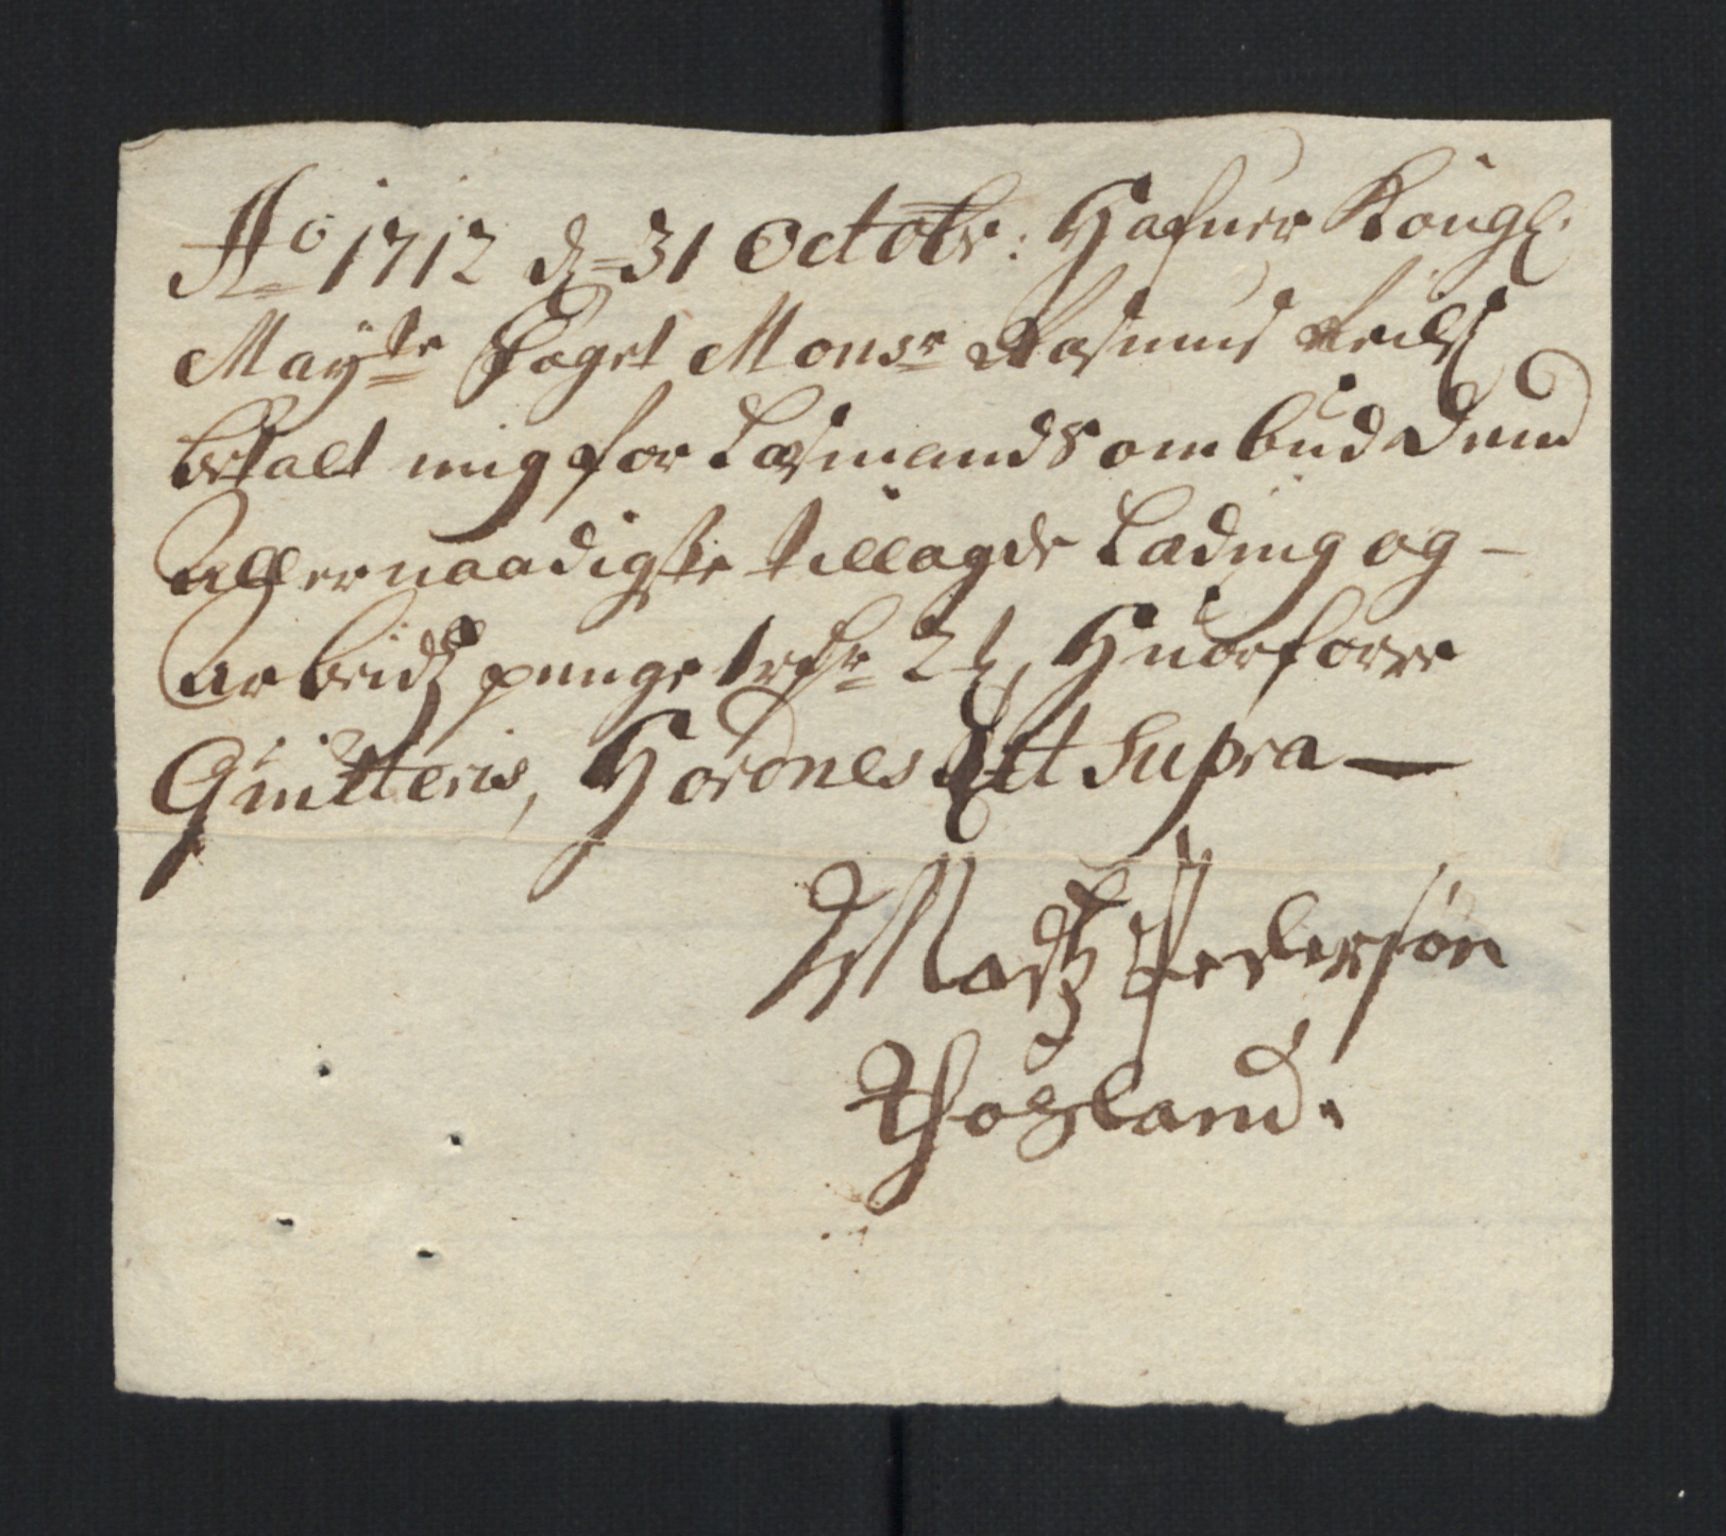 Ao 1712 d. 31 Octobr: Hafuer Kongl.
Mayts foget Monsr Rasmus
betalt mig for Lasmands ombud dend
allernaadigste tillagde Lading og -
Arbeidz penge trefr 2 Huorforre
Quitteris, Hordnes Ut Supra —
Madz Pedersøn
Hogland.